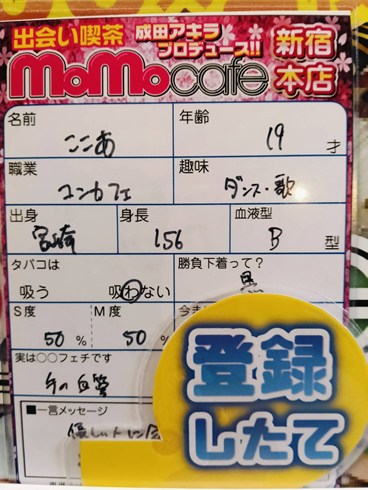 出会い喫茶 成田アキラプロデュース!!
MoMocafe 新宿本店
名前 ここあ
年齢 19 才
職業 コンカフェ
趣味 ダンス・歌
出身 宮崎
身長 156
血液型 B 型
タバコは 吸う 吸わない
勝負下着って? 黒
S度 50 %
M度 50 %
実は○○フェチです
手の血管
■一言メッセージ
優しい人に会
登録
したて